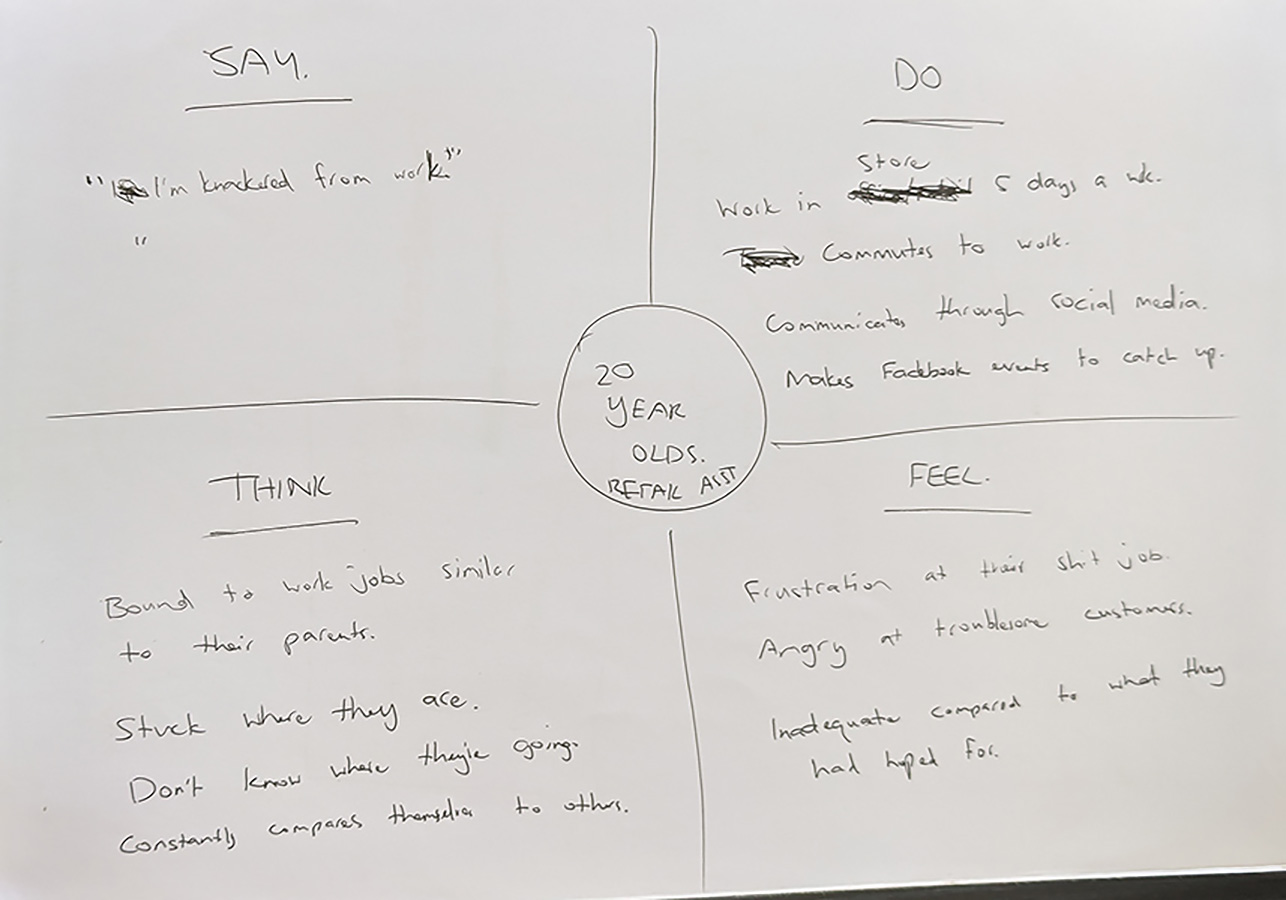 SAY.
"I'm knackered from work"
"
DO
Store
Work in 5 days a wk.
Commutes to work.
Communicates through social media.
Makes Facebook events to catch up.
20
YEAR
OLDS.
RETAIL ASST
THINK
Bound to work jobs similar
to their parents.
Stuck where they are.
Don't know where they're going.
Constantly compares themselves to others.
FEEL.
Frustration at their shit job.
Angry at troublesome customers.
Inadequate compared to what they
had hoped for.